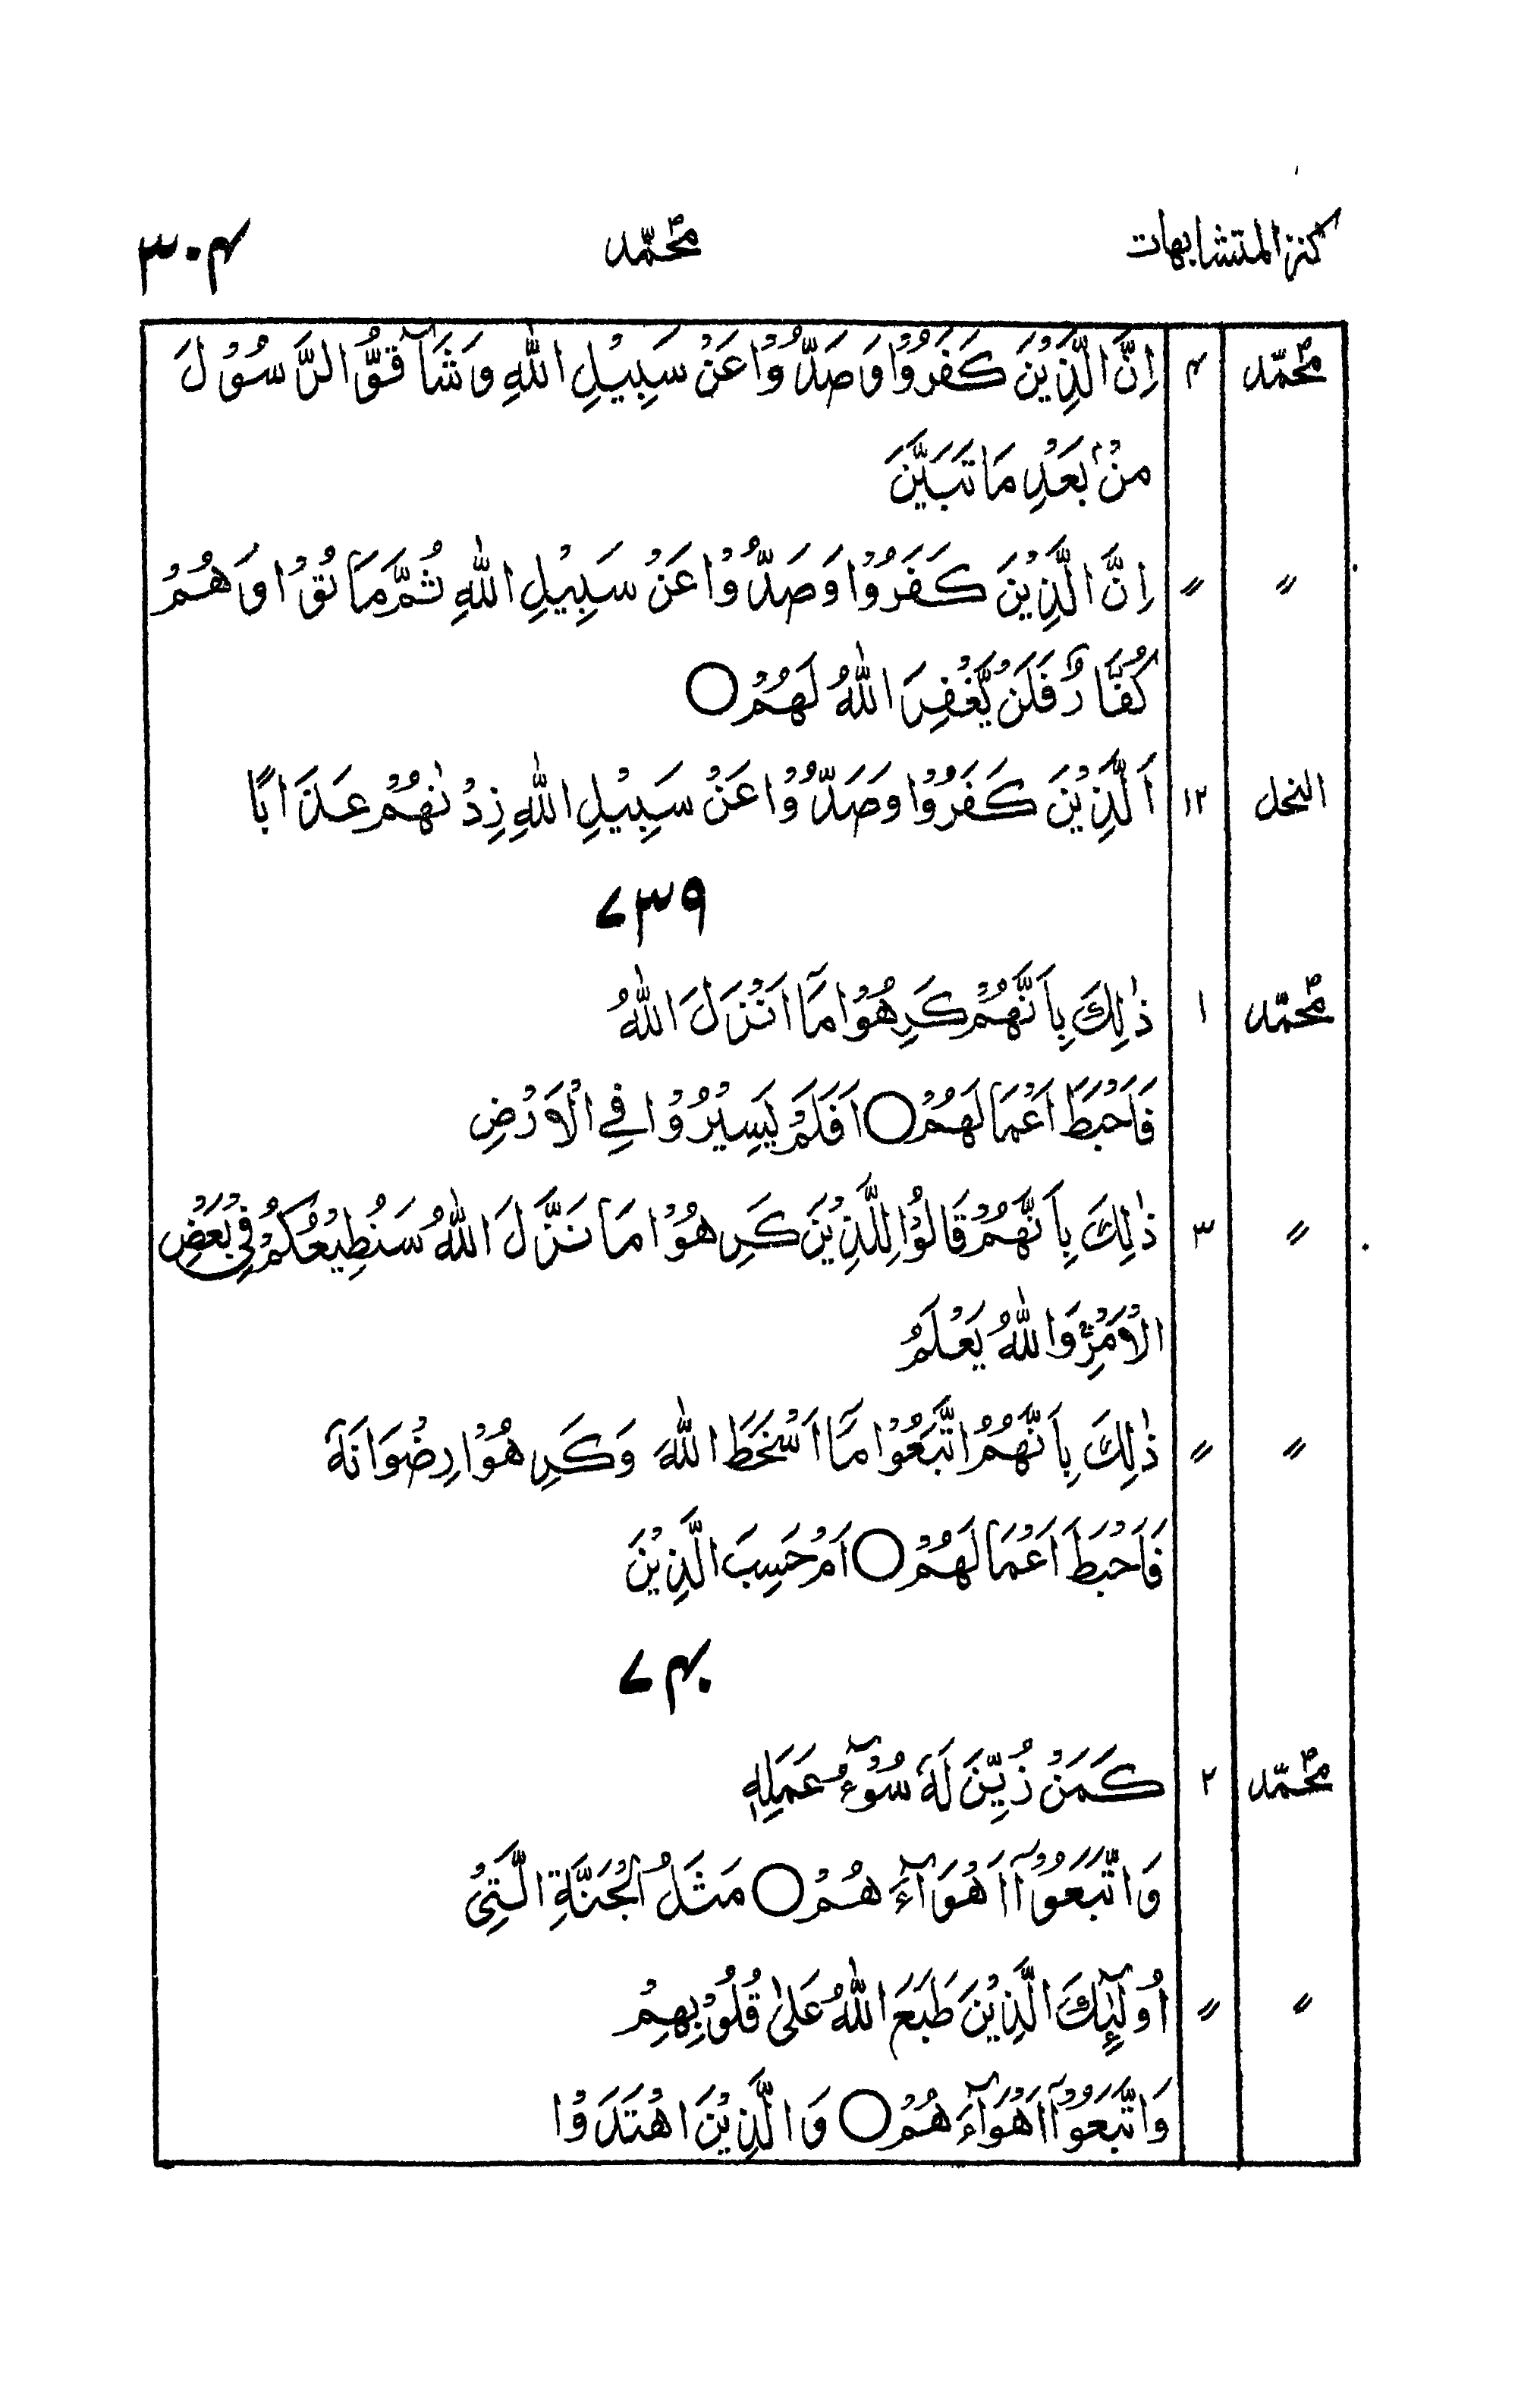 كنز المتشابهات محمّد ۳۰۴
محمّد ۴ اِنَّ الَّذِيْنَ كَفَرُوْا وَصَدُّوْا عَنْ سَبِيْلِ اللّٰهِ وَشَآقُّوا الرَّسُوْلَ
مِنْۢ بَعْدِ مَا تَبَيَّنَ
〃 〃 اِنَّ الَّذِيْنَ كَفَرُوْا وَصَدُّوْا عَنْ سَبِيْلِ اللّٰهِ ثُمَّ مَاتُوْا وَهُمْ
كُفَّارٌ فَلَنْ يَّغْفِرَ اللّٰهُ لَهُمْ ○
النحل ۱۲ اَلَّذِيْنَ كَفَرُوْا وَصَدُّوْا عَنْ سَبِيْلِ اللّٰهِ زِدْنٰهُمْ عَذَابًا
۷۳۹
محمّد ۱ ذٰلِكَ بِاَنَّهُمْ كَرِهُوْا مَآ اَنْزَلَ اللّٰهُ
فَاَحْبَطَ اَعْمَالَهُمْ ○ اَفَلَمْ يَسِيْرُوْا فِي الْاَرْضِ
〃 ۳ ذٰلِكَ بِاَنَّهُمْ قَالُوْا لِلَّذِيْنَ كَرِهُوْا مَا نَزَّلَ اللّٰهُ سَنُطِيْعُكُمْ فِيْ بَعْضِ
الْاَمْرِ ۚ وَاللّٰهُ يَعْلَمُ
〃 〃 ذٰلِكَ بِاَنَّهُمُ اتَّبَعُوْا مَآ اَسْخَطَ اللّٰهَ وَكَرِهُوْا رِضْوَانَهٗ
فَاَحْبَطَ اَعْمَالَهُمْ ○ اَمْ حَسِبَ الَّذِيْنَ
۷۴۰
محمّد ۲ كَمَنْ زُيِّنَ لَهٗ سُوْٓءُ عَمَلِهٖ
وَاتَّبَعُوْٓا اَهْوَآءَهُمْ ○ مَثَلُ الْجَنَّةِ الَّتِيْ
〃 〃 اُولٰٓئِكَ الَّذِيْنَ طَبَعَ اللّٰهُ عَلٰى قُلُوْبِهِمْ
وَاتَّبَعُوْٓا اَهْوَآءَهُمْ ○ وَالَّذِيْنَ اهْتَدَوْا